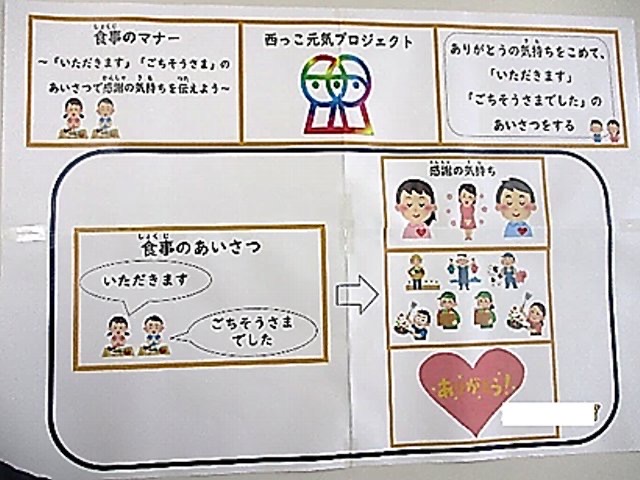 しょくじ
食事のマナー
～「いただきます」「ごちそうさま」の
かんしゃ きも つた
あいさつで感謝の気持ちを伝えよう～
西っこ元気プロジェクト
きも
ありがとうの気持ちをこめて、
「いただきます」
「ごちそうさまでした」の
あいさつをする
しょくじ
食事のあいさつ
いただきます
ごちそうさま
でした
かんしゃ きも
感謝の気持ち
ありがとう!